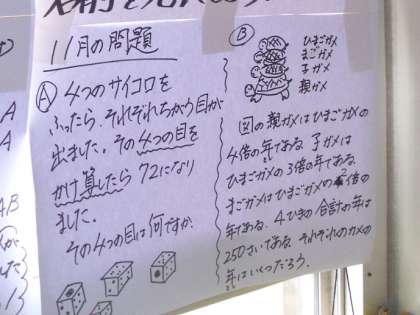 11月の問題
Ⓐ 4つのサイコロを
ふったら、それぞれちがう目が
出ました。その4つの目を
かけ算したら 72になり
ました。
その4つの目は何ですか
Ⓑ
ひまごガメ
まごガメ
子ガメ
親ガメ
図の親ガメはひまごガメの
4倍の年である 子ガメは
ひまごガメの3倍の年である
まごガメはひまごガメの2倍の
年である。4ひきの合計の年は
250さいである それぞれのカメの
年はいくつだろう。
A
A